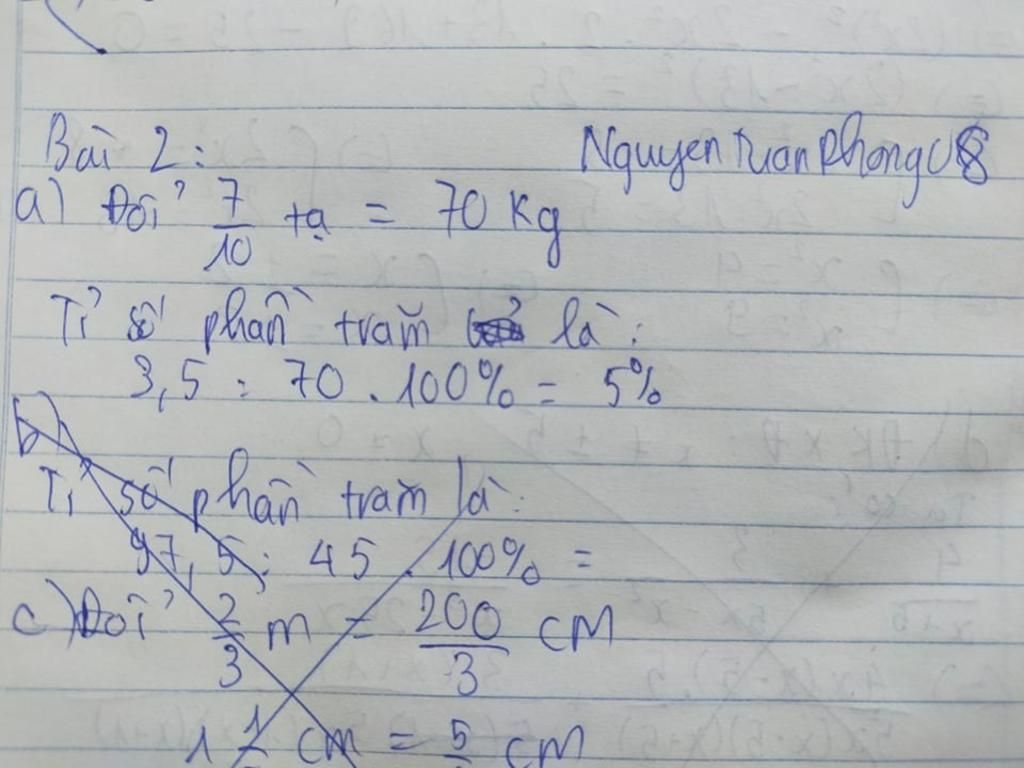 Bài 2:
Nguyen Tuan Phong C8
a) Đổi 7/10 tạ = 70 Kg
Tỉ số phần trăm là:
3,5 : 70 . 100% = 5%
b)
Tỉ số phần trăm là:
97,5 : 45 . 100% =
c) Đổi 2/3 m = 200/3 cm
cm = 5/ cm